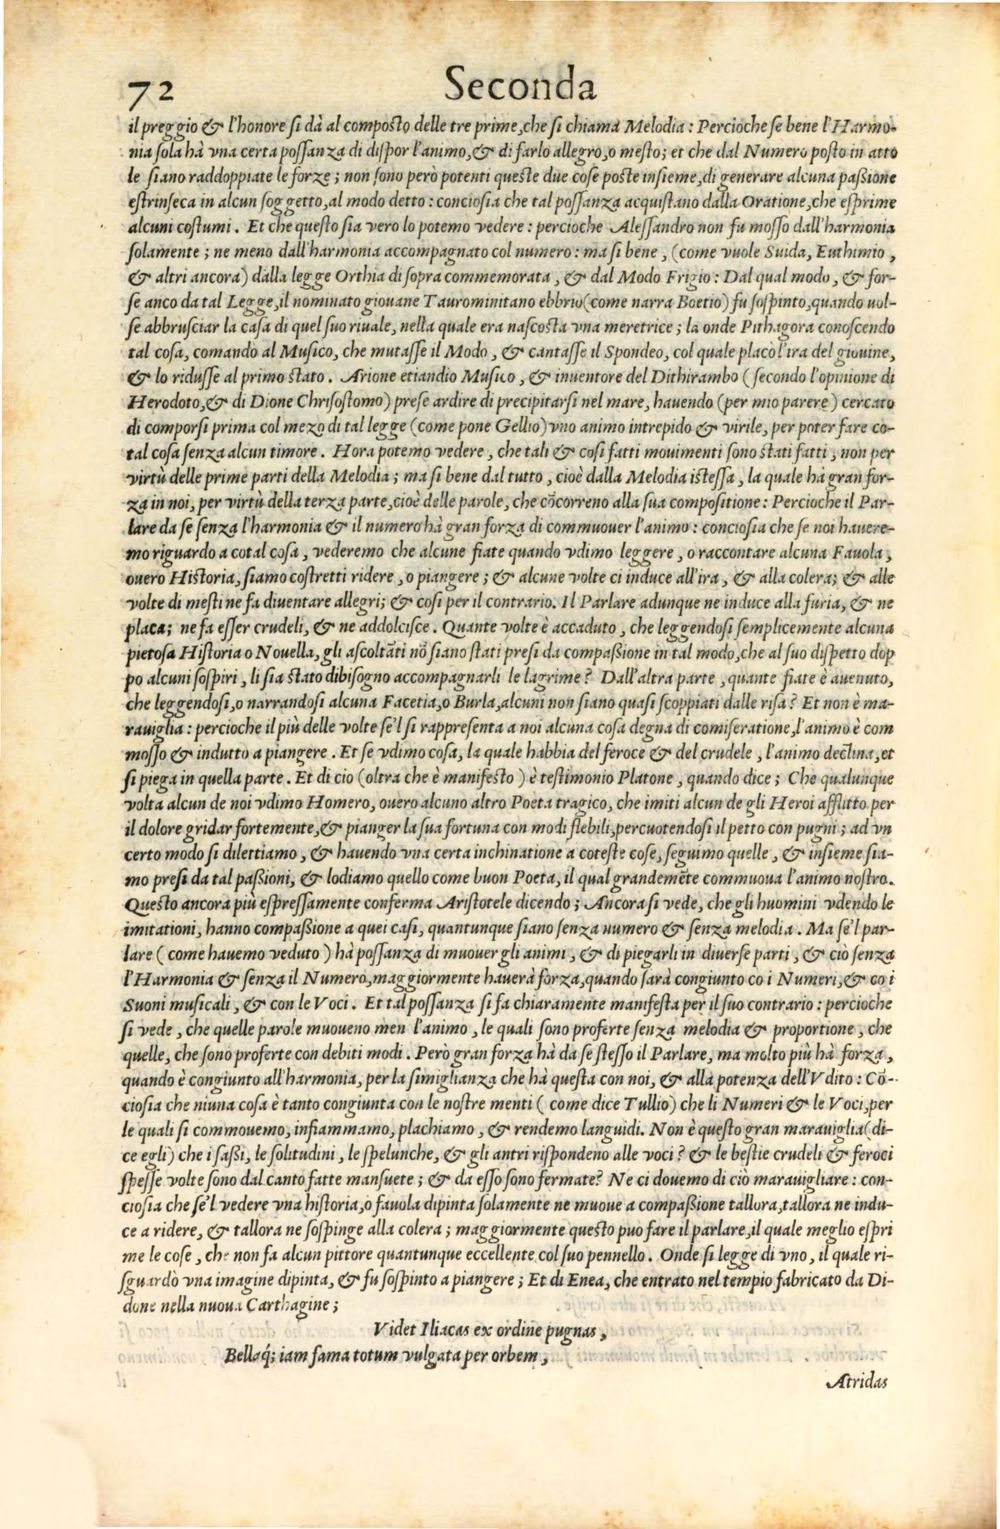 72 Seconda
il preggio & l'honore si dà al composto delle tre prime, che si chiama Melodia: Percioche se bene l'Harmo-
nia sola hà vna certa possanza di dispor l'animo, & di farlo allegro, o mesto; et che dal Numero posto in atto
le siano raddoppiate le forze; non sono però potenti queste due cose poste insieme, di generare alcuna passione
estrinseca in alcun soggetto, al modo detto: conciosia che tal possanza acquistano dalla Oratione, che esprime
alcuni costumi. Et che questo sia vero lo potemo vedere: percioche Alessandro non fu mosso dall'harmonia
solamente; ne meno dall'harmonia accompagnato col numero: ma si bene, (come vuole Suida, Euthimio,
& altri ancora) dalla legge Orthia di sopra commemorata, & dal Modo Frigio: Dal qual modo, & for-
se anco da tal Legge, il nominato giouane Taurominitano ebbrio (come narra Boetio) fu sospinto, quando uol-
se abbrusciar la casa di quel suo riuale, nella quale era nascosta vna meretrice; la onde Pithagora conoscendo
tal cosa, comandò al Musico, che mutasse il Modo, & cantasse il Spondeo, col quale placò l'ira del giouine,
& lo ridusse al primo stato. Arione etiandio Musico, & inuentore del Dithirambo (secondo l'opinione di
Herodoto, & di Dione Chrisostomo) prese ardire di precipitarsi nel mare, hauendo (per mio parere) cercato
di comporsi prima col mezo di tal legge (come pone Gellio) vno animo intrepido & virile, per poter fare co-
tal cosa senza alcun timore. Hora potemo vedere, che tali & cosi fatti mouimenti sono stati fatti, non per
virtù delle prime parti della Melodia; ma si bene dal tutto, cioè dalla Melodia istessa, la quale hà gran for-
za in noi, per virtù della terza parte, cioè delle parole, che cõcorreno alla sua compositione: Percioche il Par-
lare da se senza l'harmonia & il numero hà gran forza di commuouer l'animo: conciosia che se noi hauere-
mo riguardo a cotal cosa, vederemo che alcune fiate quando vdimo leggere, o raccontare alcuna Fauola,
ouero Historia, siamo costretti ridere, o piangere; & alcune volte ci induce all'ira, & alla colera; & alle
volte di mesti ne fa diuentare allegri; & cosi per il contrario. Il Parlare adunque ne induce alla furia, & ne
placa; ne fa esser crudeli, & ne addolcisce. Quante volte è accaduto, che leggendosi semplicemente alcuna
pietosa Historia o Nouella, gli ascoltãti nõ siano stati presi da compassione in tal modo, che al suo dispetto dop
po alcuni sospiri, li sia stato dibisogno accompagnarli le lagrime? Dall'altra parte, quante fiate è auenuto,
che leggendosi, o narrandosi alcuna Facetia, o Burla, alcuni non siano quasi scoppiati dalle risa? Et non è ma-
rauiglia: percioche il più delle volte se'l si rappresenta a noi alcuna cosa degna di comiseratione, l'animo è com
mosso & indutto a piangere. Et se vdimo cosa, la quale habbia del feroce & del crudele, l'animo declina, et
si piega in quella parte. Et di cio (oltra che è manifesto) è testimonio Platone, quando dice; Che qualunque
volta alcun de noi vdimo Homero, ouero alcuno altro Poeta tragico, che imiti alcun de gli Heroi afflitto per
il dolore gridar fortemente, & pianger la sua fortuna con modi flebili, percuotendosi il petto con pugni; ad vn
certo modo si dilettiamo, & hauendo vna certa inchinatione a coteste cose, seguimo quelle, & insieme sia-
mo presi da tal passioni, & lodiamo quello come buon Poeta, il qual grandemẽte commuoua l'animo nostro.
Questo ancora più espressamente conferma Aristotele dicendo; Ancora si vede, che gli huomini vdendo le
imitationi, hanno compassione a quei casi, quantunque siano senza numero & senza melodia. Ma se'l par-
lare (come hauemo veduto) hà possanza di muouer gli animi, & di piegarli in diuerse parti, & ciò senza
l'Harmonia & senza il Numero, maggiormente hauerà forza, quando sarà congiunto co i Numeri, & co i
Suoni musicali, & con le Voci. Et tal possanza si fa chiaramente manifesta per il suo contrario: percioche
si vede, che quelle parole muoueno men l'animo, le quali sono proferte senza melodia & proportione, che
quelle, che sono proferte con debiti modi. Però gran forza hà da se stesso il Parlare, ma molto più hà forza,
quando è congiunto all'harmonia, per la simiglianza che hà questa con noi, & alla potenza dell'Vdito: Cõ-
ciosia che niuna cosa è tanto congiunta con le nostre menti (come dice Tullio) che li Numeri & le Voci, per
le quali si commouemo, infiammamo, plachiamo, & rendemo languidi. Non è questo gran marauiglia (di-
ce egli) che i sassi, le solitudini, le spelunche, & gli antri rispondeno alle voci? & le bestie crudeli & feroci
spesse volte sono dal canto fatte mansuete; & da esso sono fermate? Ne ci douemo di ciò marauigliare: con-
ciosia che se'l vedere vna historia, o fauola dipinta solamente ne muoue a compassione tallora, tallora ne indu-
ce a ridere, & tallora ne sospinge alla colera; maggiormente questo puo fare il parlare, il quale meglio espri
me le cose, che non fa alcun pittore quantunque eccellente col suo pennello. Onde si legge di vno, il quale ri-
sguardò vna imagine dipinta, & fu sospinto a piangere; Et di Enea, che entrato nel tempio fabricato da Di-
done nella nuoua Carthagine;
Videt Iliacas ex ordine pugnas,
Bellaq́; iam fama totum vulgata per orbem,
Atridas